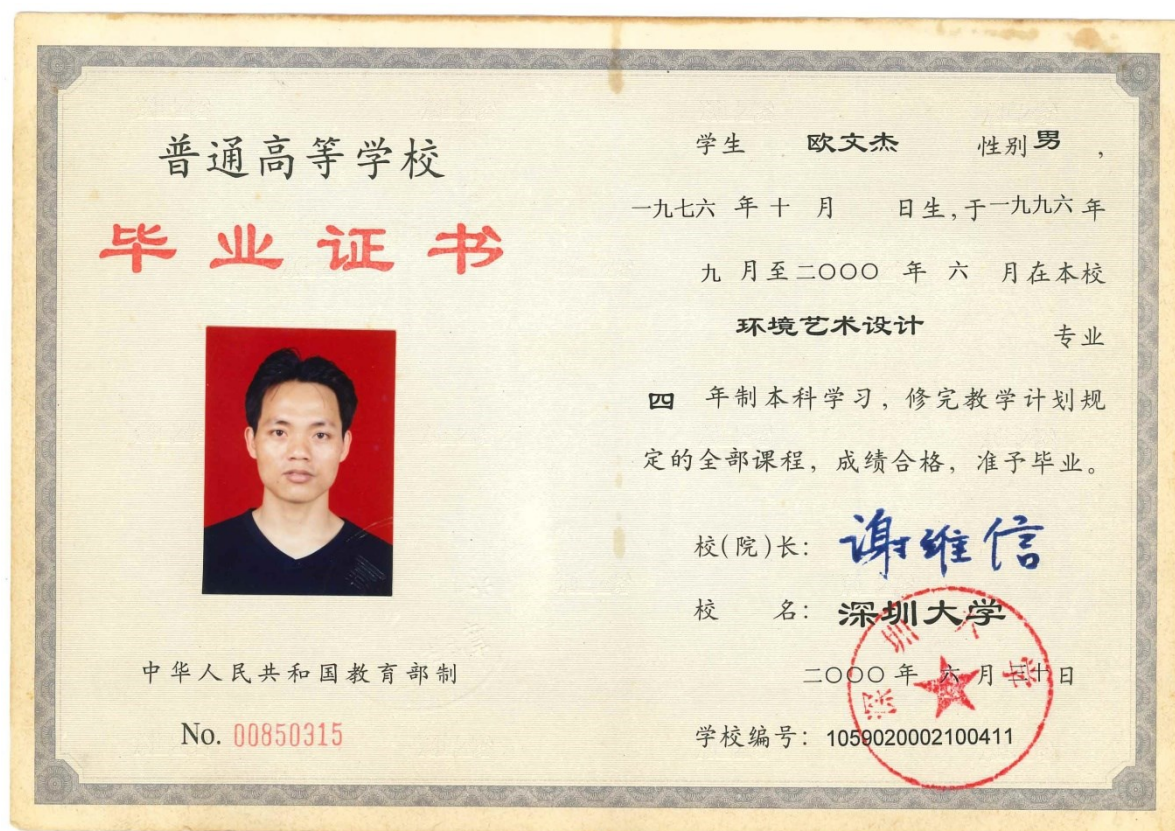 普通高等学校
毕业证书
中华人民共和国教育部制
No. 00850315
学生 欧文杰 性别 男 ,
一九七六 年 十 月 日生,于一九九六 年
九 月至二〇〇〇 年 六 月在本校
环境艺术设计 专业
四 年制本科学习, 修完教学计划规
定的全部课程, 成绩合格, 准予毕业。
校(院)长: 谢维信
校 名: 深圳大学
二〇〇〇 年 六 月 三十 日
学校编号: 1059020002100411
深圳大学